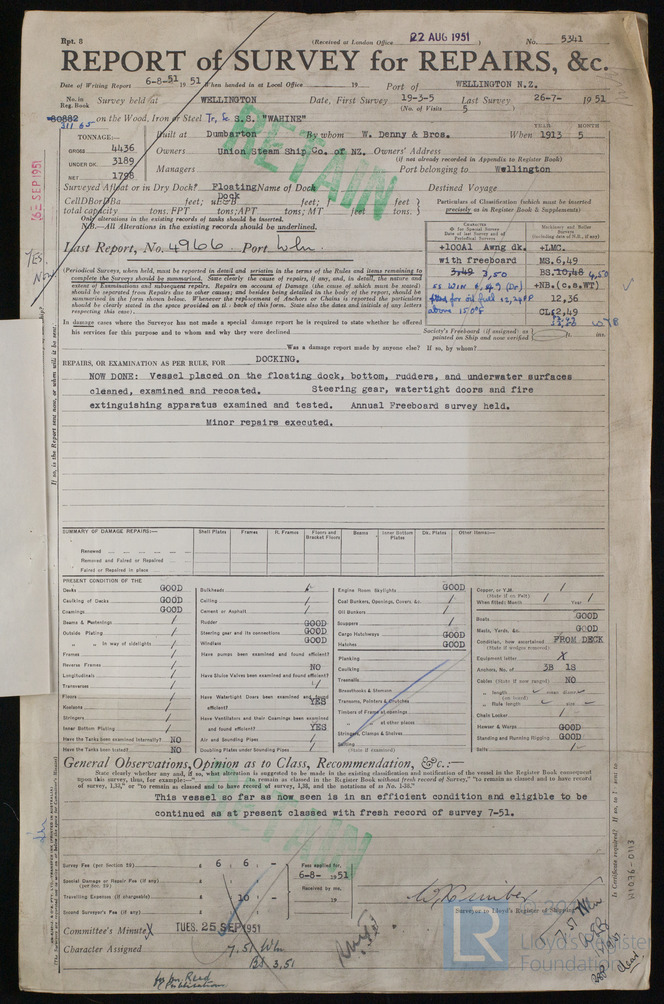 Rpt. 8
(Received at London Office 22 AUG 1951 )
No. 5341
REPORT of SURVEY for REPAIRS, &c.
Date of Writing Report 6-8-51 19 51 When handed in at Local Office 19 Port of WELLINGTON N.Z.
No. in Reg. Book Survey held at WELLINGTON Date, First Survey 19-3-5 Last Survey 26-7- 1951
(No. of Visits 5 )
80882 on the Wood, Iron or Steel Tr. Sc S.S. "WAHINE"
31165
TONNAGE:—
GROSS 4436
UNDER DK. 3189
NET 1798
Built at Dumbarton By whom W. Denny & Bros. When 1913 5
YEAR MONTH
Owners Union Steam Ship Co. of NZ. Owners' Address
(if not already recorded in Appendix to Register Book)
Managers Port belonging to Wellington
Surveyed Afloat or in Dry Dock? Floating Dock Name of Dock Destined Voyage
total capacity tons. FPT tons; APT tons; MT feet tons.
Only alterations in the existing records of tanks should be inserted.
N.B.—All Alterations in the existing records should be underlined.
Particulars of Classification (which must be inserted precisely as in Register Book & Supplements)
Last Report, No. 4966 Port Wln
+100A1 Awng dk. +LMC.
with freeboard MS.6,49
3,49 3,50 BS.10,48 4,50
+NB.(c.o.WT)
12,36
CL 2,49
above 150°F
(Periodical Surveys, when held, must be reported in detail and seriatim in the terms of the Rules and items remaining to complete the Surveys should be summarised. State clearly the cause of repairs, if any, and, in detail, the nature and extent of Examinations and subsequent repairs. Repairs on account of Damage (the cause of which must be stated) should be separated from Repairs due to other causes; and besides being detailed in the body of the report, should be summarised in the form shown below. Whenever the replacement of Anchors or Chains is reported the particulars should be clearly stated in the space provided on the back of this form. State also the dates and initials of any letters respecting this case).
In damage cases where the Surveyor has not made a special damage report he is required to state whether he offered his services for this purpose and to whom and why they were declined
Society's Freeboard (if assigned) as painted on Ship and now verified
Was a damage report made by anyone else? If so, by whom?
REPAIRS, OR EXAMINATION AS PER RULE, FOR DOCKING.
NOW DONE: Vessel placed on the floating dock, bottom, rudders, and underwater surfaces
cleaned, examined and recoated. Steering gear, watertight doors and fire
extinguishing apparatus examined and tested. Annual Freeboard survey held.
Minor repairs executed.
RETAIN
SUMMARY OF DAMAGE REPAIRS:—
Shell Plates Frames R. Frames Floors and Bracket Floors Beams Inner Bottom Plates Dk. Plates Other Items:—
Renewed
Removed and Faired or Repaired
Faired or Repaired in place
PRESENT CONDITION OF THE
Decks GOOD
Caulking of Decks GOOD
Coamings GOOD
Beams & Fastenings
Outside Plating
" " in way of sidelights
Frames
Reverse Frames
Longitudinals
Transverses
Floors
Keelsons
Stringers
Inner Bottom Plating
Have the Tanks been examined internally? NO
Have the Tanks been tested? NO
Bulkheads
Ceiling
Cement or Asphalt
Rudder GOOD
Steering gear and its connections GOOD
Windlass GOOD
Have pumps been examined and found efficient?
NO
Have Sluice Valves been examined and found efficient?
Have Watertight Doors been examined and found efficient? YES
Have Ventilators and their Coamings been examined and found efficient? YES
Air and Sounding Pipes
Doubling Plates under Sounding Pipes
Engine Room Skylights GOOD
Coal Bunkers, Openings, Covers &c.
Oil Bunkers
Scuppers
Cargo Hatchways GOOD
Hatches GOOD
Planking
Caulking
Treenails
Breasthooks & Stemson
Transoms, Pointers & Crutches
Timbers of Frame at openings
" " at other places
Stringers, Clamps & Shelves
Salting
(State if examined)
Copper, or Y.M.
(State if on Felt)
When fitted: Month Year
Boats GOOD
Masts, Yards, &c. GOOD
Condition, how ascertained FROM DECK
(State if wedges removed)
Equipment letter X
Anchors, No. of 3B 1S
Cables (State if now ranged) NO
" length mean diamr.
(on board)
" Rule length size
Chain Locker
Hawser & Warps GOOD
Standing and Running Rigging GOOD
Sails
General Observations, Opinion as to Class, Recommendation, &c.:—
State clearly whether any, and if so, what alteration is suggested to be made in the existing classification and notification of the vessel in the Register Book consequent upon this survey, thus, for example:—"to remain as classed in the Register Book without fresh record of Survey," "to remain as classed and to have record of survey, 1,38," or "to remain as classed and to have record of survey, 1,38, and the notations of ss No. 1-38."
This vessel so far as now seen is in an efficient condition and eligible to be
continued as at present classed with fresh record of survey 7-51.
RETAIN
Survey Fee (per Section 29) £ 6 : 6 : -
Special Damage or Repair Fee (if any) (per Sec. 29) £
Travelling Expenses (if chargeable) £ 10 : -
Second Surveyor's Fee (if any) £
Fees applied for, 6-8- 1951
Received by me, 19
Surveyor to Lloyd's Register of Shipping
Committee's Minute TUES. 25 SEP 1951
Character Assigned 7.51 Wln
BS 3,51
7.51 Wln
Lloyd's Register
Foundation
LR
YES